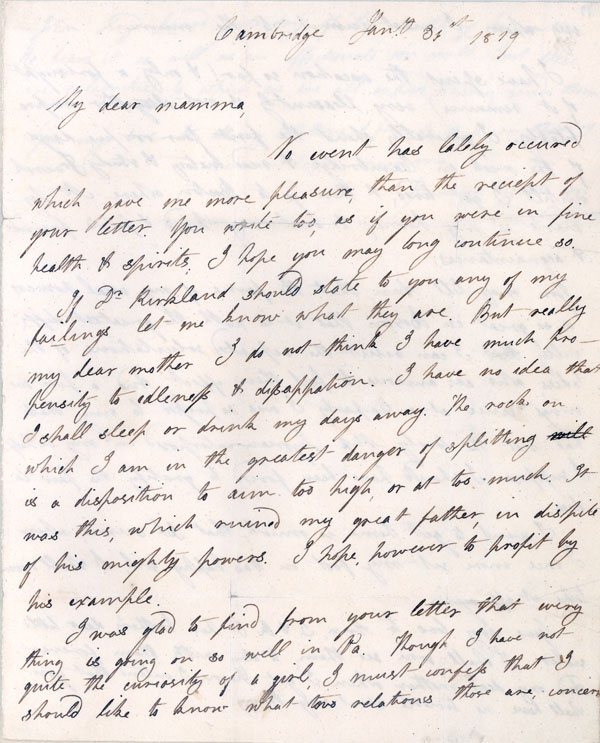 Cambridge Jany 31st 1819
My dear mamma,
No event has lately occured
which gave me more pleasure, than the reciept of
your letter. You write too, as if you were in fine
health & spirits. I hope you may long continue so.
If Dr Kirkland should state to you any of my
failings let me know what they are. But really
my dear mother I do not think I have much pro-
pensity to idleness & dissappation. I have no idea that
I shall sleep or drink my days away. The rock on
which I am in the greatest danger of splitting will
is a disposition to aim too high, or at too much. It
was this, which ruined my great father in dispite
of his mighty powers. I hope, however to profit by
his example.
I was glad to find from your letter that every
thing is going on so well in Pa. Though I have not
quite the curiosity of a girl, I must confess that I
should like to know what two relations those are, concern